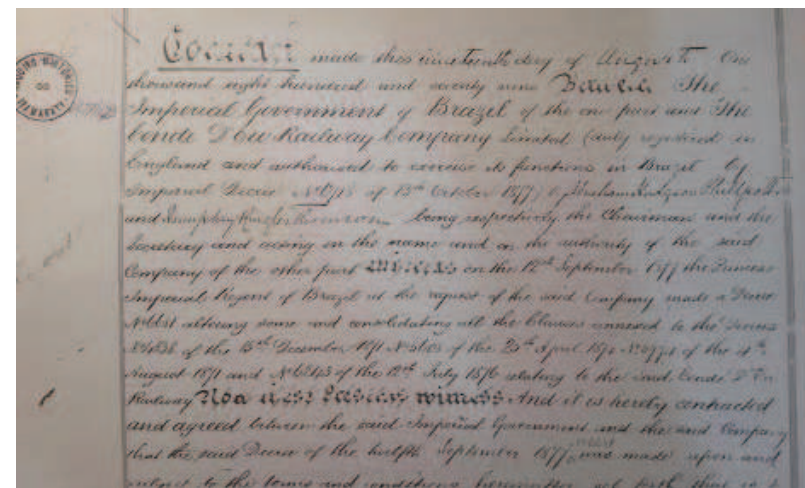 made this nineteenth day of August One
thousand eight hundred and seventy nine Between The
Imperial Government of Brazil of the one part and The
Conde D'Eu Railway Company Limited (duly registered in
England and authorised to exercise its functions in Brazil by
Imperial Decree of 13th October 1877)
and being respectively the Chairman and the
Secretary and acting in the name and on the authority of the said
Company of the other part Whereas on the 12th September 1877 the Princess
Imperial Regent of Brazil at the request of the said Company made a Decree
altering some and consolidating all the Clauses annexed to the Decrees
of the 15th December 1871 of the 25th April of the 4th
August 1871 and of the 12th July 1876 relating to the said Conde D'Eu
Railway witness And it is hereby contracted
and agreed between the said Imperial Government and the said Company
that the said Decree of the twelfth September 1877 was made upon and
subject to the terms and conditions hereinafter set forth that is